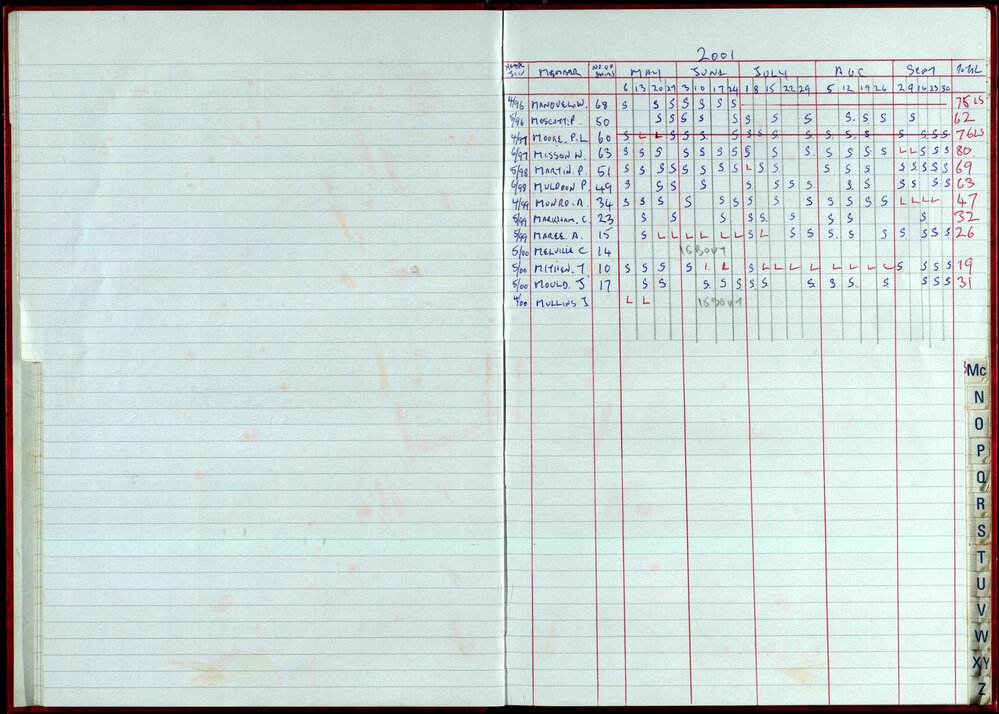 2001
MEMBER NO OF SWIMS MAY JUNE JULY AUG SEPT TOTAL
6 13 20 27 3 10 17 24 1 8 15 22 29 5 12 19 26 2 9 16 23 30
4/96 68 S S S S S S S 75 LS
5/96 50 S S S S S S S S S S S S 62
4/97 MOORE. P.L. 60 S L L S S S. S S S S S S S S S S S S S S 76 LS
6/97 MISSON W. 63 S S S S S S S S S S S S S S L L S S S 80
5/98 MARTIN. P. 51 S S S S S S S S L S S S S S S S S S S 69
6/98 MULDOON P. 49 S S S S S S S S S S S S S S 63
4/99 MONRO. A. 34 S S S S S S S S S S S S S L L L L 47
5/99 MARKHAM. C. 23 S S S S S S S S S 32
5/99 MAREE. A. 15 S L L L L L L S L S S S S S S S S S 26
5/00 MELVILLE C 14 ISBOUT
5/00 MITHEN. T 10 S S S S L L S L L L L L L L L S S S S 19
5/00 MOULD. J 17 S S S S S S S S S S S S S S 31
4/00 MULLINS J L L ISBOUT
Mc
N
O
P
Q
R
S
T
U
V
W
XY
Z